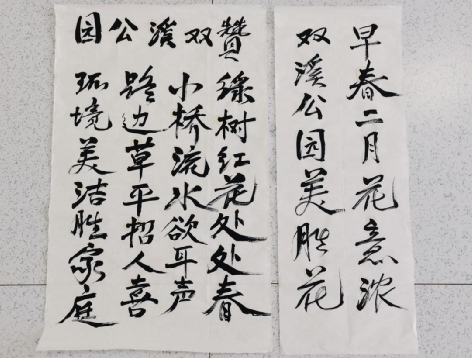 早春二月花意浓
双溪公园美胜花
贊双溪公园
绿树红花处处春
小桥流水欲耳声
路边草平招人喜
环境美洁胜家庭